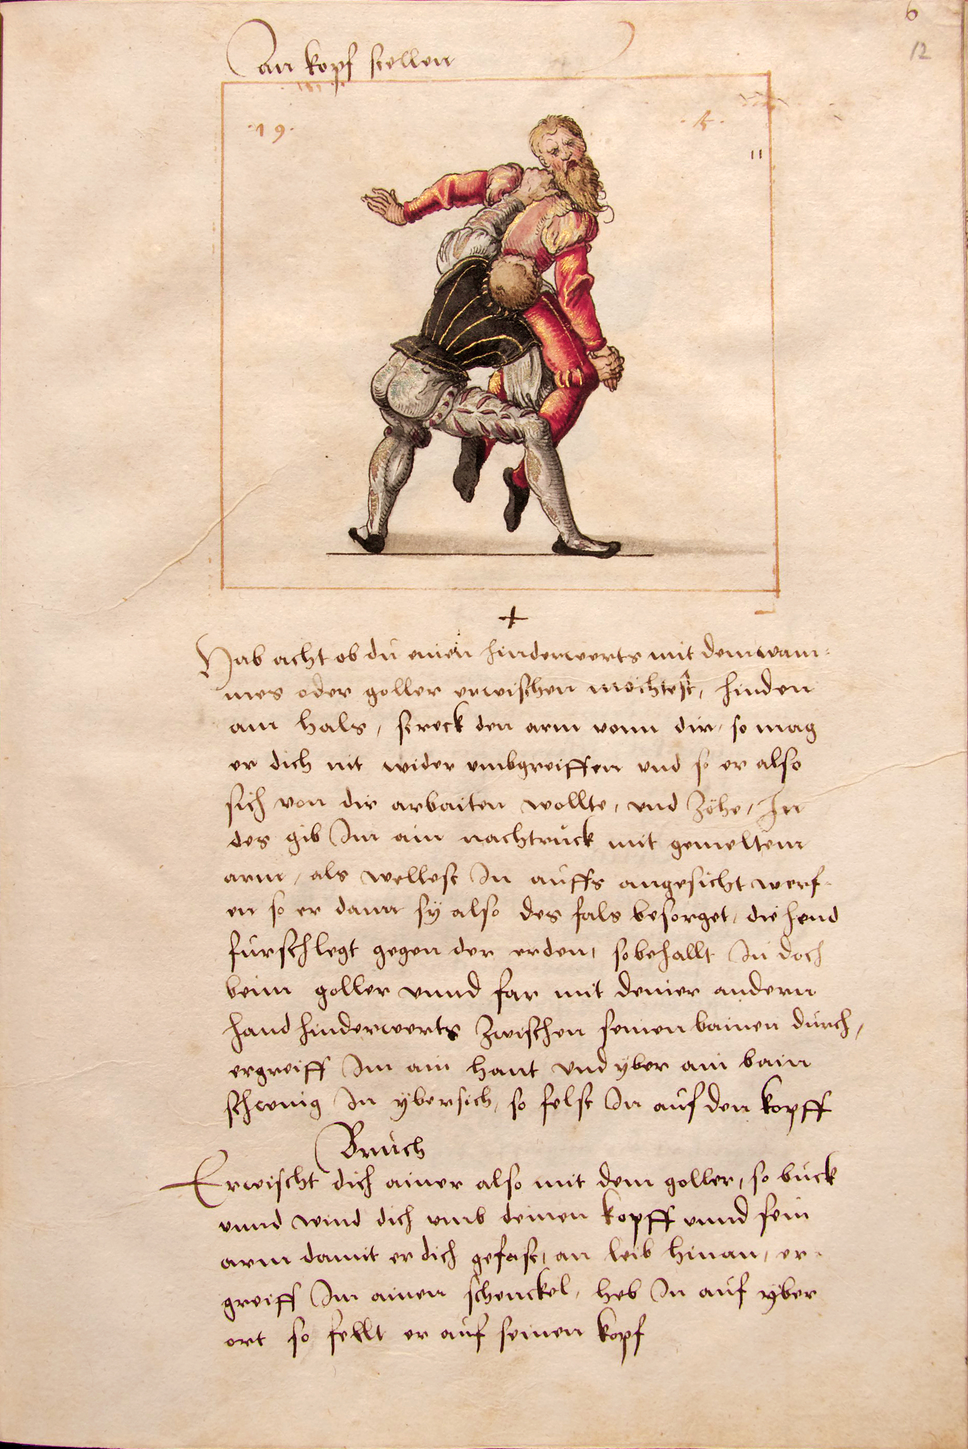 6
12
An kopf stellen
·19·
·4·
11
Hab acht ob du einen hinderwerts mit dem wam-
mes oder goller erwischen möchtest, hinden
am hals, streck den arm vonn dir, so mag
er dich nit wider umbgreiffen und so er also
sich von dir arbaiten wollte, und zöhe, In
des gib Im ain nachtruck mit gemeltem
arm, als wellest In auffs angesicht werf-
en so er dann sy also des fals besorget, die hend
fürschlegt gegen der erden, so behallt In doch
beim goller vnnd far mit deiner andern
hand hinderwerts zwischen seinen bainen durch,
ergreiff Im ain hant und yber ain bain
schwing In ybersich, so felst In auf den kopff
Bruch
Erwischt dich ainer also mit dem goller, so buck
vnnd wind dich vmb deinen kopff vnnd sein
arm damit er dich gefast, an leib hinan, er-
greiff Im ainen schenckel, heb In auf yber
ort so fellt er auf seinen kopf